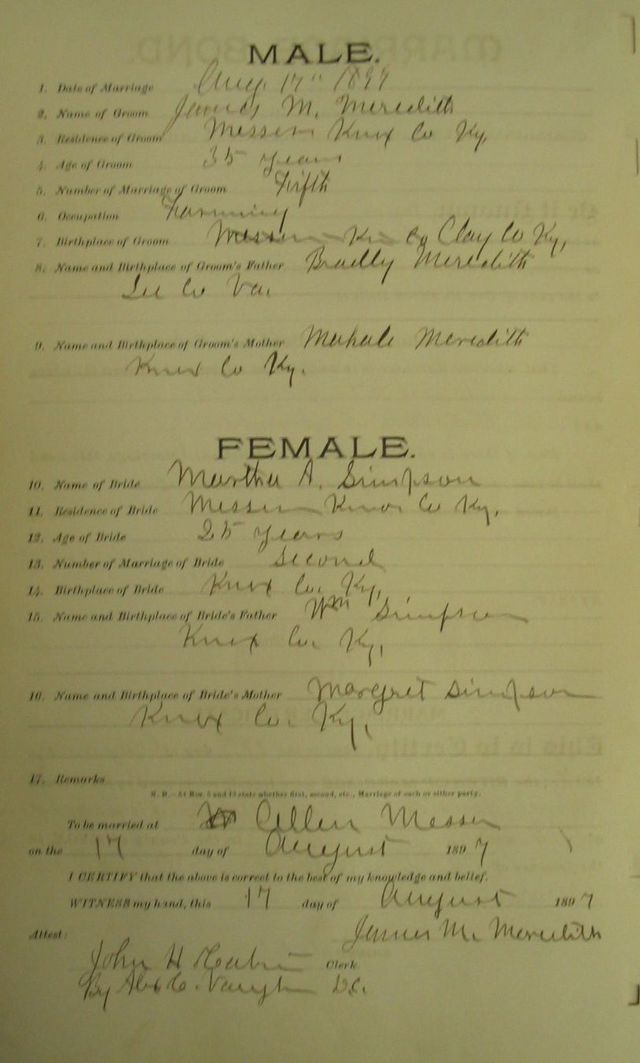 MALE.
1. Date of Marriage Aug 17" 1897
2. Name of Groom James M. Meredith
3. Residence of Groom Messer Knox Co Ky,
4. Age of Groom 35 years
5. Number of Marriage of Groom Fifth
6. Occupation Farming
7. Birthplace of Groom Co Clay Co Ky,
8. Name and Birthplace of Groom's Father Bradly Meredith
Lee Co Va.
9. Name and Birthplace of Groom's Mother Mahale Meredith
Knox Co Ky.
FEMALE.
10. Name of Bride Martha A. Simpson
11. Residence of Bride Messer Knox Co Ky,
12. Age of Bride 25 years
13. Number of Marriage of Bride Second
14. Birthplace of Bride Knox Co. Ky,
15. Name and Birthplace of Bride's Father Wm Simpson
Knox Co. Ky,
16. Name and Birthplace of Bride's Mother Margret Simpson
Knox Co. Ky,
17. Remarks
N. B.—At Nos. 5 and 13 state whether first, second, etc., Marriage of each or either party.
To be married at Messer
on the 17 day of August 1897
I CERTIFY that the above is correct to the best of my knowledge and belief.
WITNESS my hand, this 17 day of August 1897
James M. Meredith
Attest:
John H Clerk
By C. Vaughn D.C.